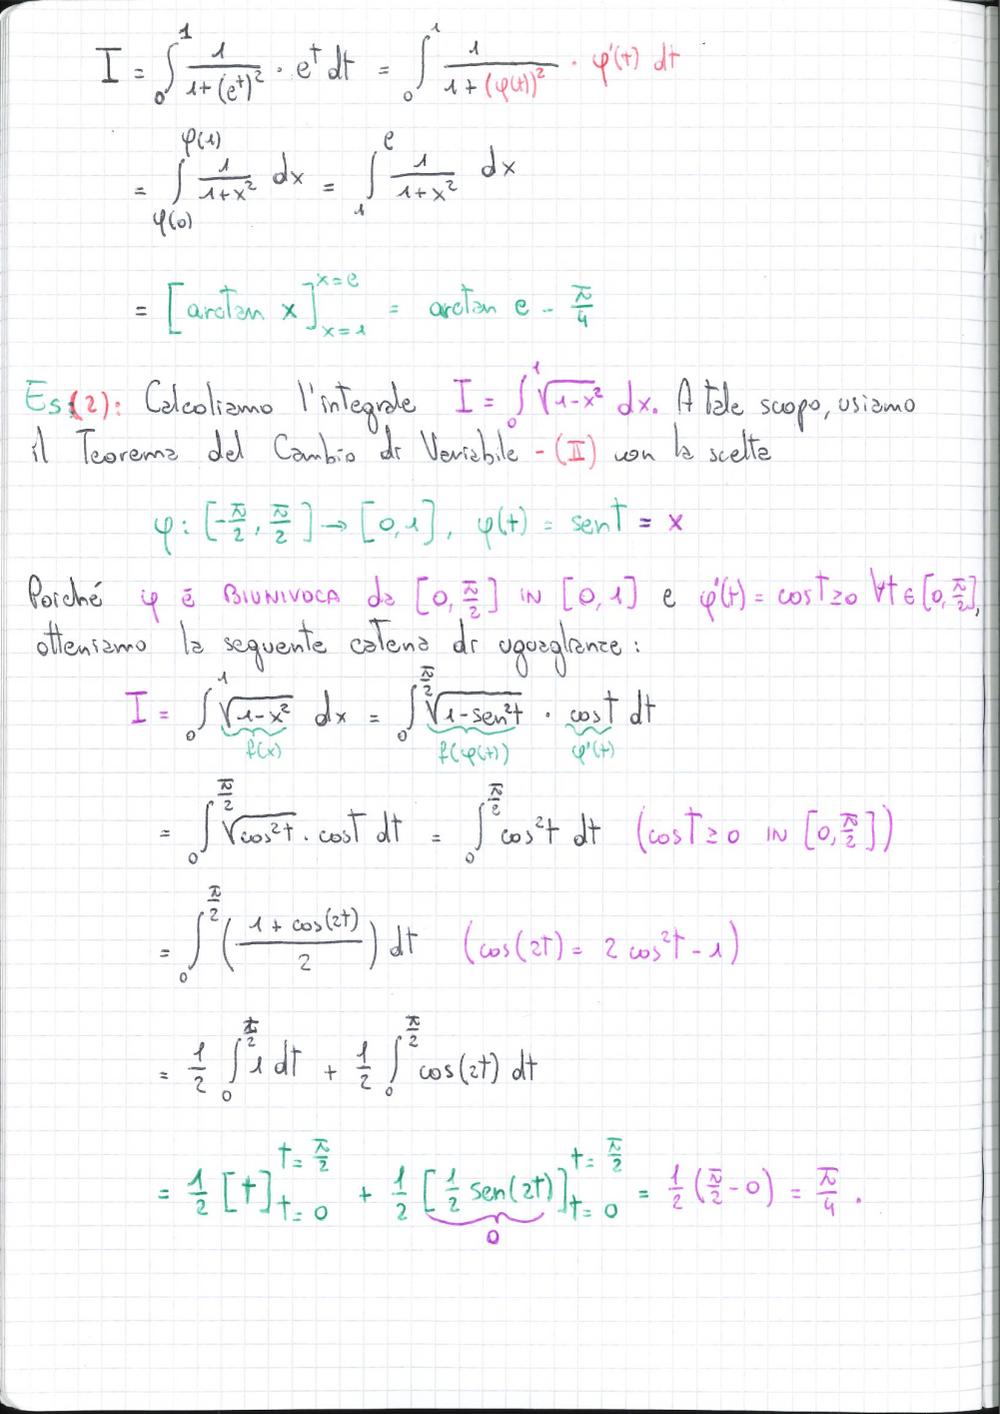 I = ∫₀¹ 1/(1+(eᵗ)²) · eᵗ dt = ∫₀¹ 1/(1+(φ(t))²) · φ'(t) dt
= ∫_{φ(0)}^{φ(1)} 1/(1+x²) dx = ∫₁ᵉ 1/(1+x²) dx
= [arctan x]_{x=1}^{x=e} = arctan e - π/4
Es(2): Calcoliamo l'integrale I = ∫₀¹ √(1-x²) dx. A tale scopo, usiamo
il Teorema del Cambio di Variabile - (II) con la scelta
φ: [-π/2, π/2] → [0,1], φ(t) = sent = x
Poiché φ é BIUNIVOCA da [0, π/2] IN [0,1] e φ'(t) = cost ≥ 0 ∀t ∈ [0, π/2],
otteniamo la seguente catena di uguaglianze:
I = ∫₀¹ √(1-x²) dx = ∫₀^{π/2} √(1-sen²t) · cost dt
f(x) f(φ(t)) φ'(t)
= ∫₀^{π/2} √(cos²t) · cost dt = ∫₀^{π/2} cos²t dt (cost ≥ 0 IN [0, π/2])
= ∫₀^{π/2} ((1 + cos(2t))/2) dt (cos(2t) = 2 cos²t - 1)
= 1/2 ∫₀^{π/2} 1 dt + 1/2 ∫₀^{π/2} cos(2t) dt
= 1/2 [t]_{t=0}^{t=π/2} + 1/2 [1/2 sen(2t)]_{t=0}^{t=π/2} = 1/2 (π/2 - 0) = π/4 .
0